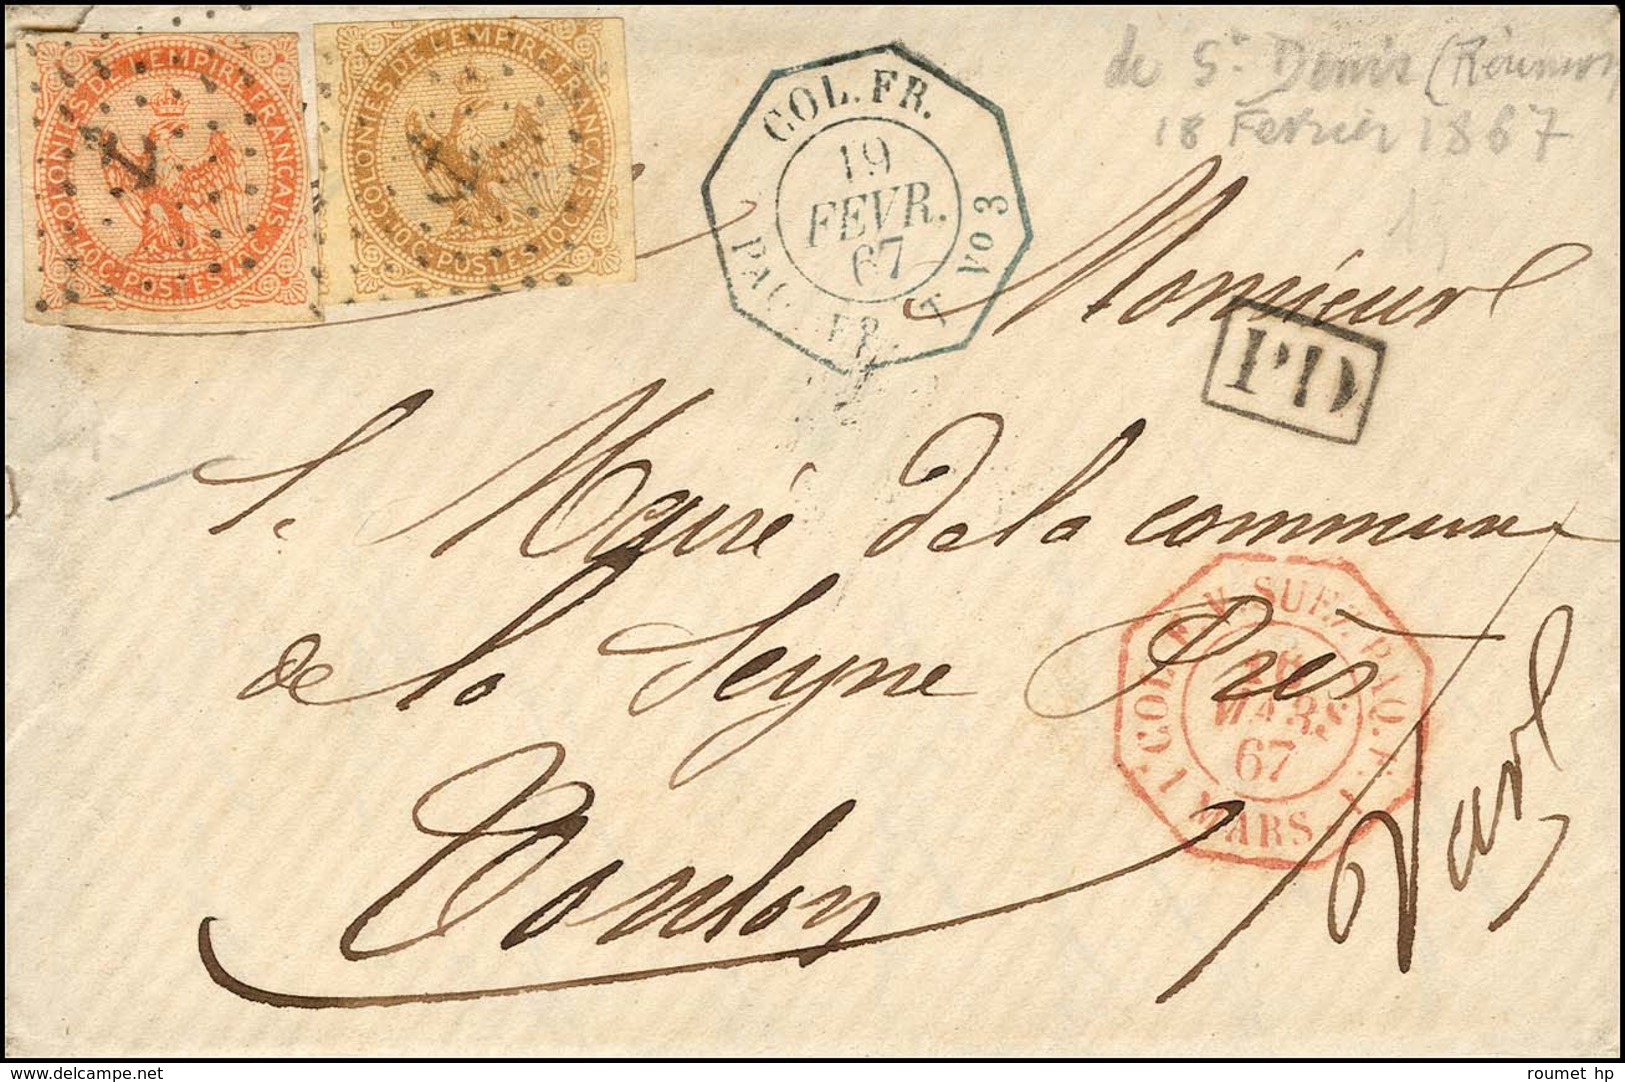 COLONIES DE L'EMPIRE FRANÇAIS
40C. POSTES 40C.
COLONIES DE L'EMPIRE FRANÇAIS
10C. POSTES 10C.
COL. FR.
19
FEVR.
67
PAQ. FR. X No 3
de St Denis (Réunion)
18 Fevrier 1867
15
Monsieur
PD
le Maire de la commune
de la Seyne Près
Toulon
Var
COL. F. V. SUEZ. PAQ. F.
MARS
67
1 MARS 1
roumet hp